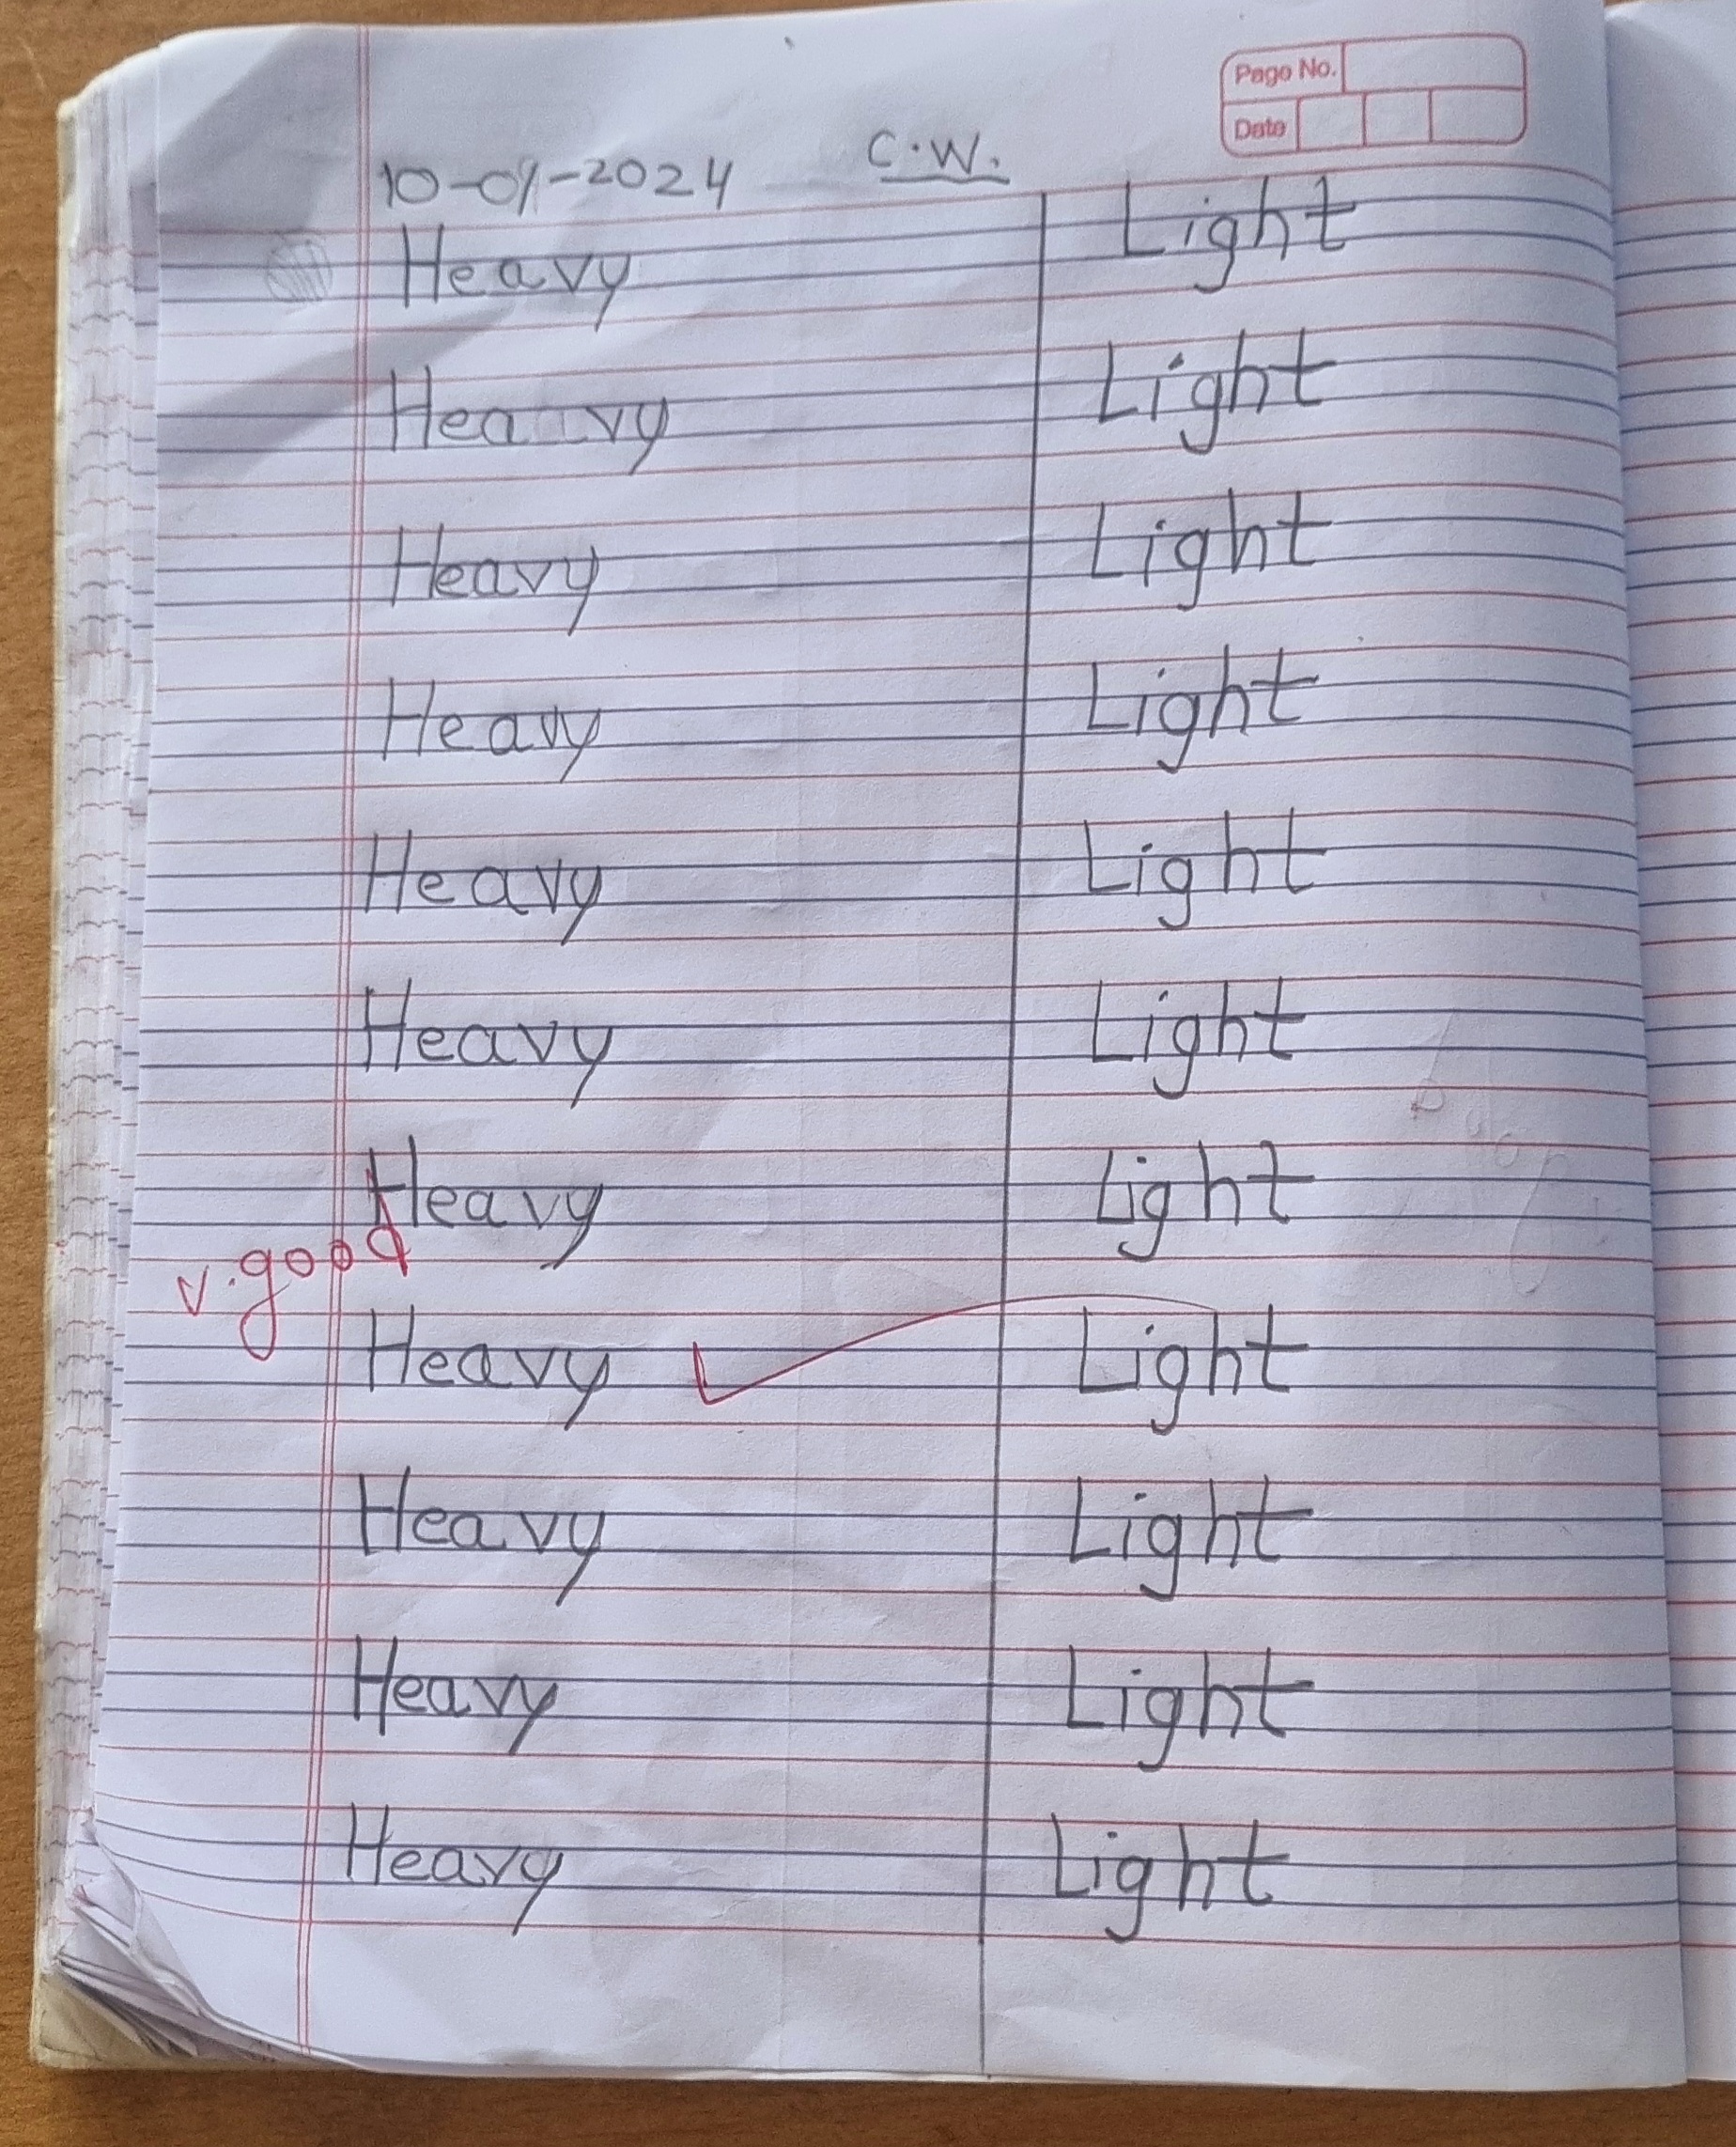 Page No.
Date
10-01-2024 C.W.
Heavy Light
Heavy Light
Heavy Light
Heavy Light
Heavy Light
Heavy Light
Heavy Light
v.good
Heavy Light
Heavy Light
Heavy Light
Heavy Light